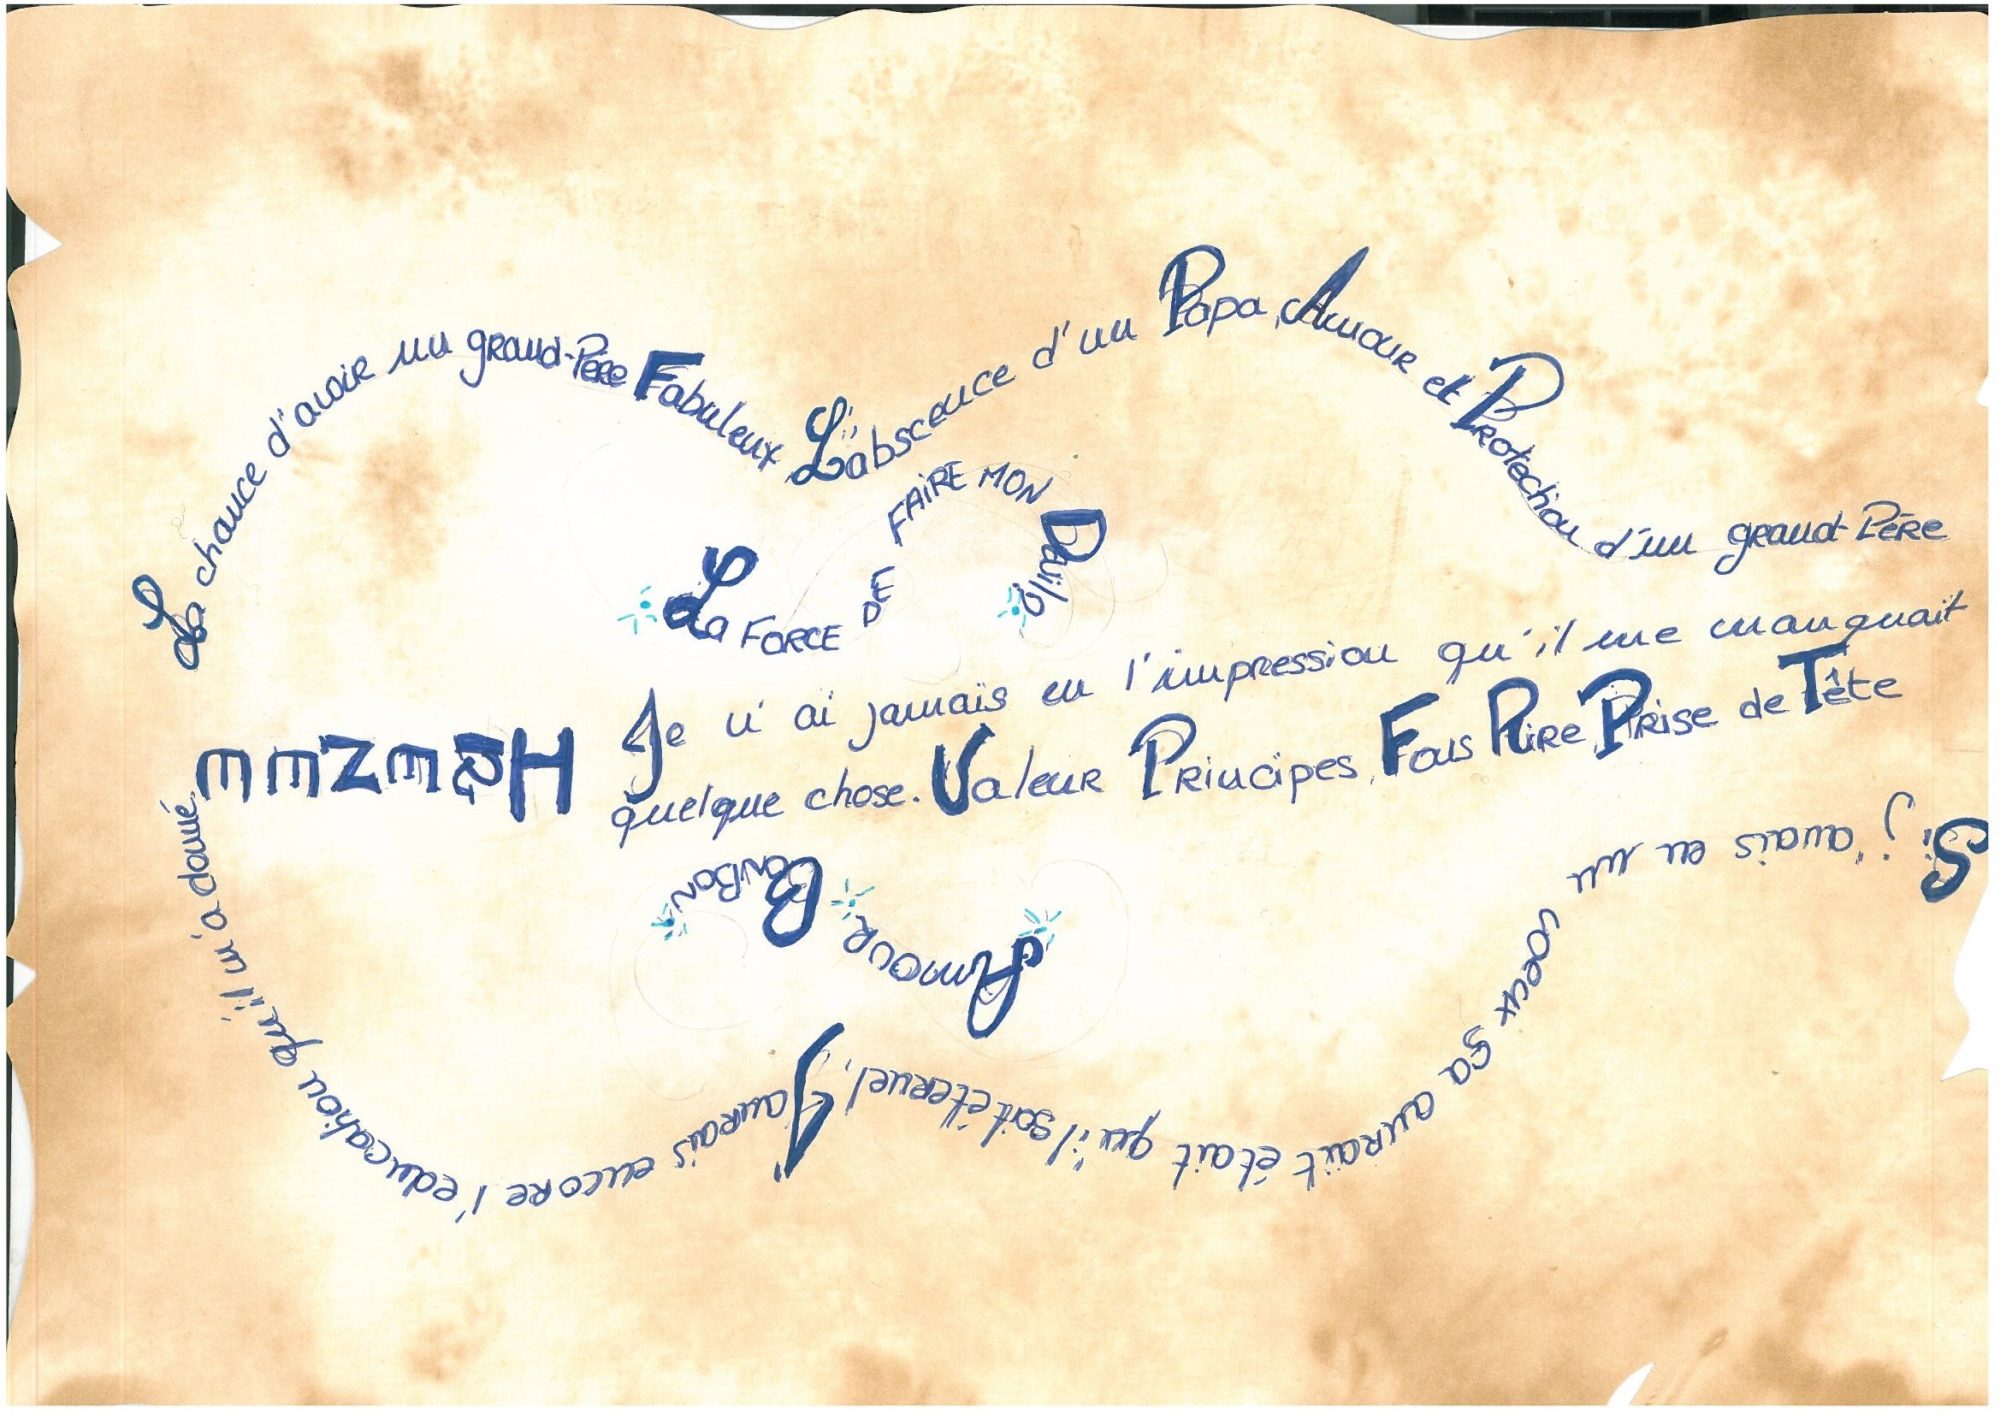 La chance d'avoir un grand-Père Fabuleux, L'abscence d'un Papa, Amour et Protection d'un grand-Père
La FORCE DE FAIRE MON Deuil
IRENEE
Je n'ai jamais eu l'impression qu'il me manquait
quelque chose. Valeur Principes, Fous Rire, Prise de Tête
Amour BONBON
Si j'avais eu un voeux ça aurait était qu'il soit éternel, J'aurais encore l'education qu'il m'a donné